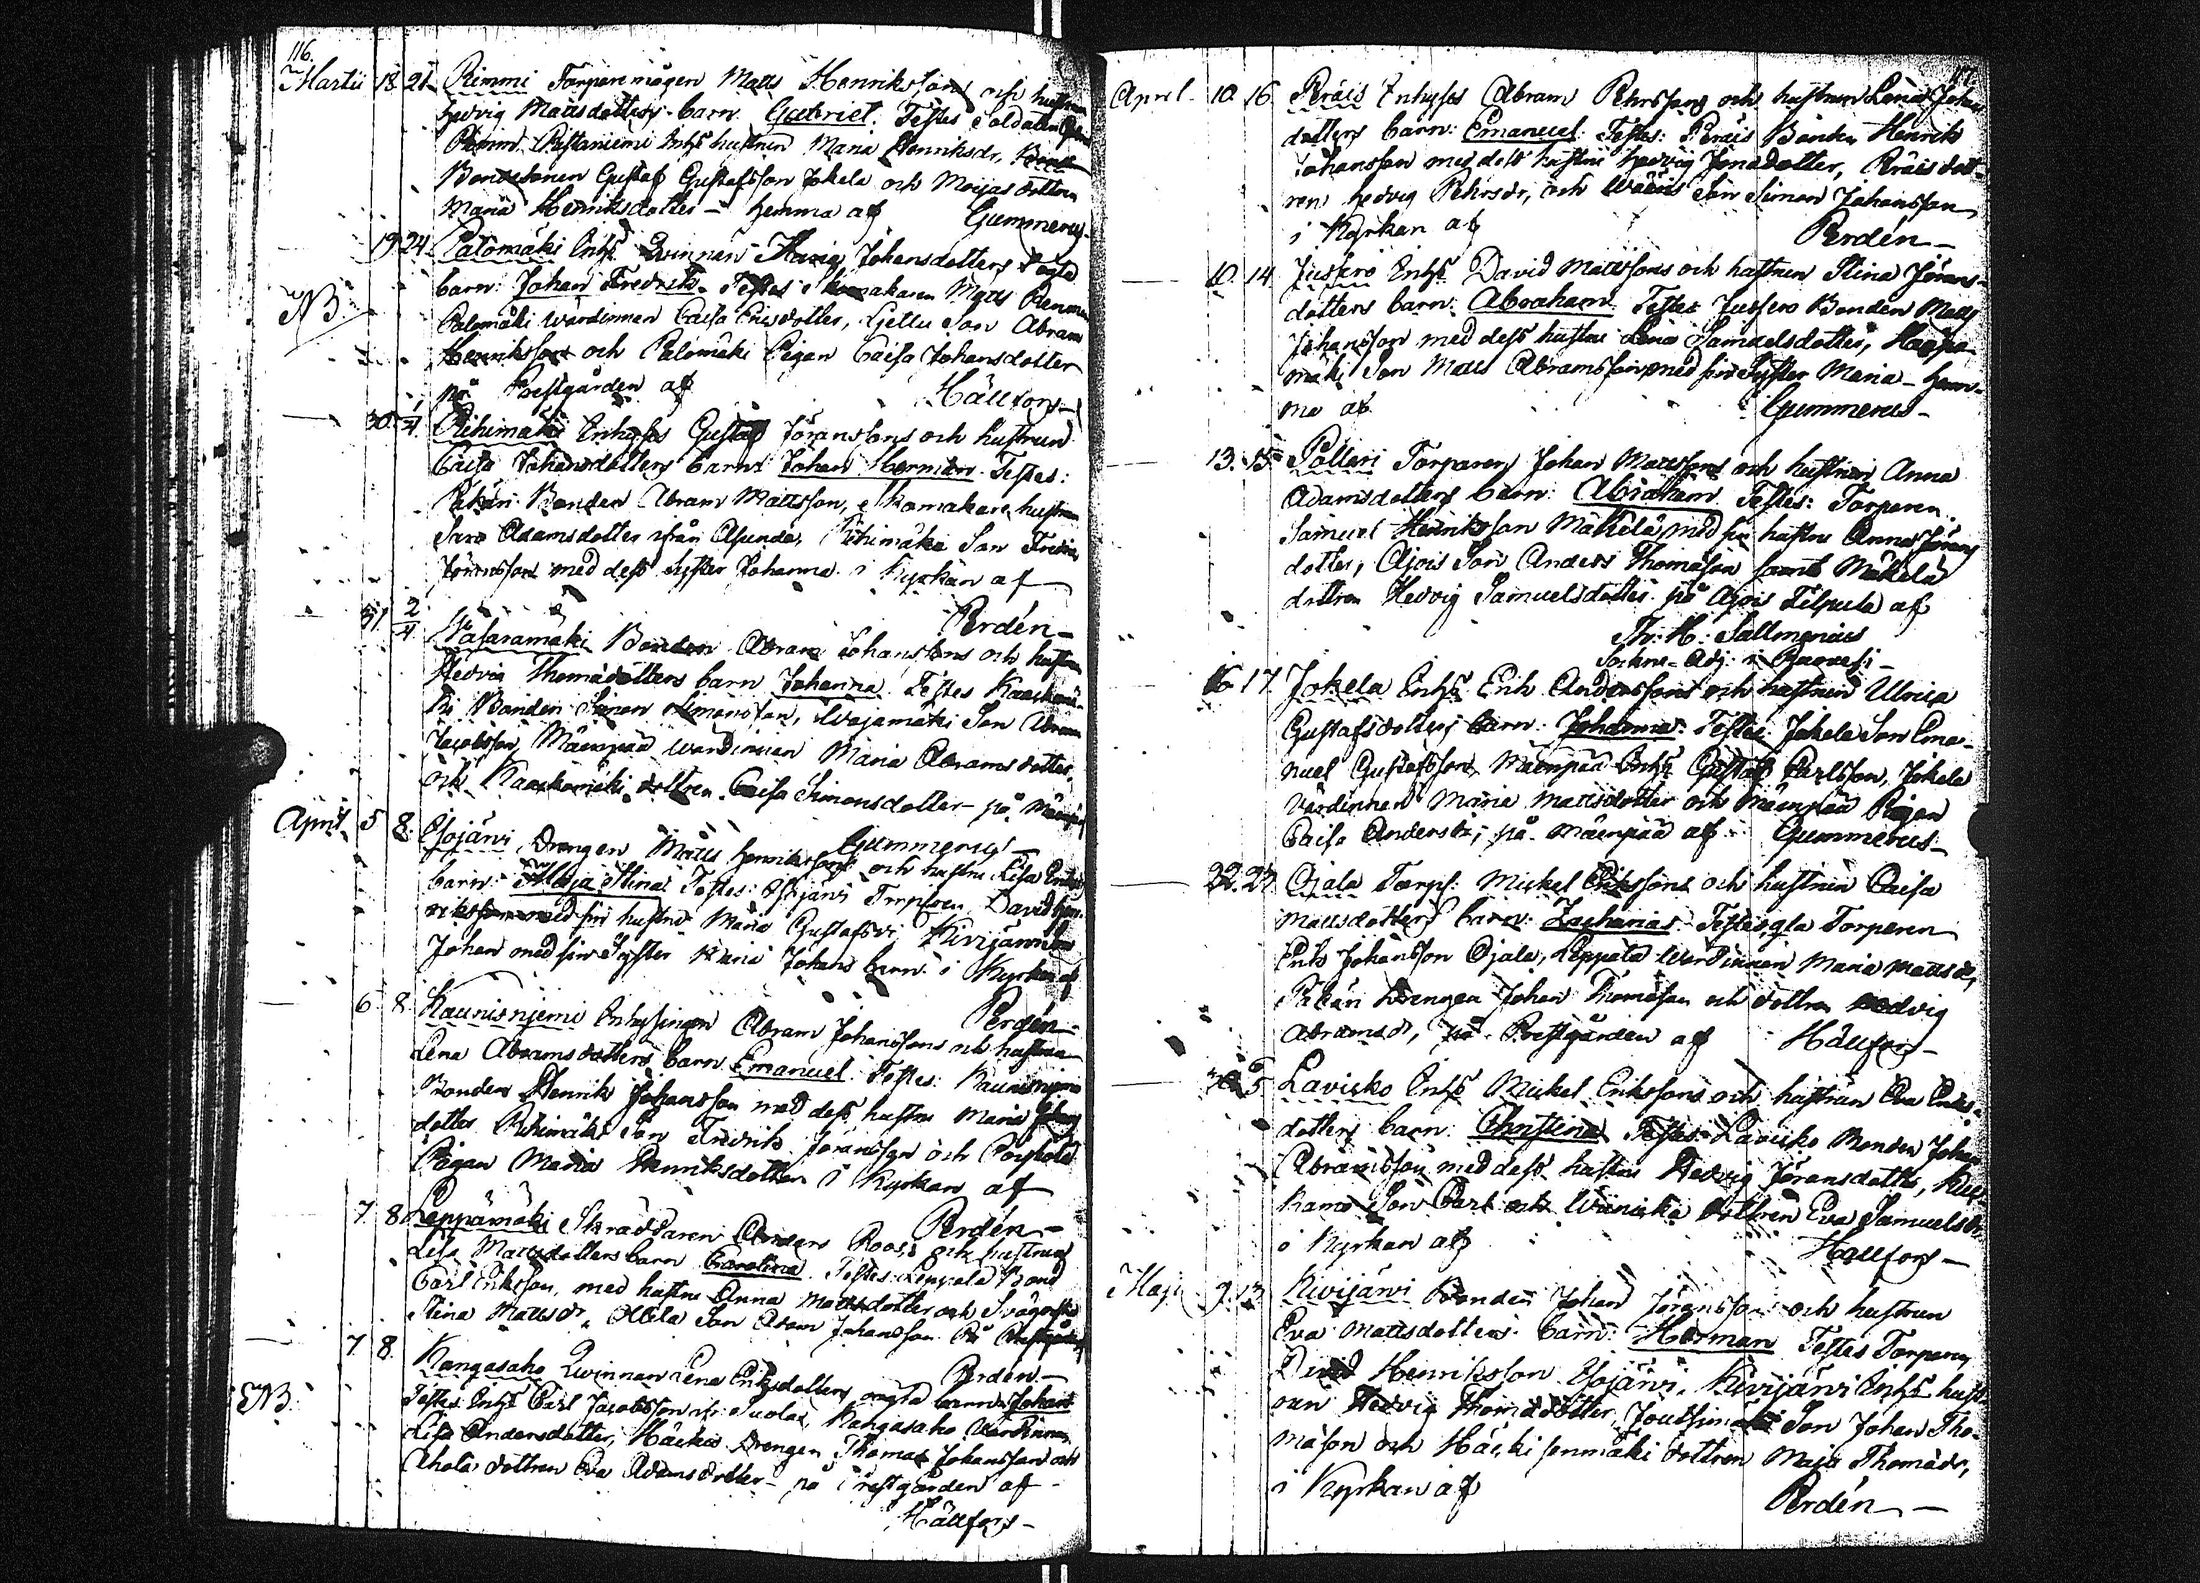 116.
Martii 18. 21. Rimmi Torparemågen Matts Henrikssons och hustrun
Hedvig Mattsdotters barn: Gabriel. Testes Soldaten
Inhs hustrun Maria Henriksdr,
Bondesonen Gustaf Gustafsson Jokela och Moijas dottren
Maria Henriksdotter - hemma af Gummerus.
19. 24. Palomäki Inhs Qvinnan Maria Johansdotters oägta
NB. barn: Johan Fredrik. Testes Skomakaren Matts
Palomäki Wärdinnan Caisa Ericsdotter, Son Abram
Henriksson och Palomäki Pigan Caisa Johansdotter
på Prestgården af Hällfors -
30. 1/4 Rihimäki Inhyses Gustaf Göranssons och hustrun
Caisa Johansdotters barn: Johan Herman. Testes:
Pekäri Bonden Abram Mattsson, Skomakare hustrun
Sara Adamsdotter ifrån Asunda, Rihimäki Son Fredric
Göransson med dess Syster Johanna i Kyrkan af
Perdén -
31. 2/4 Wasaramäki Bonden Abram Johanssons och hustrun
Hedvig Thomædotters barn Johanna. Testes
Bonden Simon Simonsson, Wajamäki Son Abram
Jacobsson, Mäenpää wärdinnan Maria Abramsdotter,
och dottren Caisa Simonsdotter - på Mäenpää
Gummerus -
April 5 8. Ysojärvi Drengen Matts Henrikssons och hustru Lisa
barn: Maja Stina. Testes: Ysojärvi Torparen David Hen-
riksson med sin hustru Maria Gustafsdr, Kivijärvi Son
Johan med sin Syster Maria Johans barn. i Kyrkan af
Perdén -
6 8. Kaunisniemi Inhysingen Abram Johanssons och hustrun
Lena Abramsdotters barn Emanuel. Testes: Kaunisniemi
Bonden Henrik Johansson med dess hustru Maria
dotter Rihimäki Son Fredrik Göransson och
Pigan Maria Henriksdotter i Kyrkan af
Perdén -
7. 8 Leppämäki Skräddaren Anders Roos's och hustrun
Lisa Mattsdotters barn Carolina. Testes: Leppälä Bond
Carl Eriksson, med hustru Anna Mattsdotter och Svägerska
Stina Mattsdr, Son Adam Johansson. På Prestgården
Perdén -
7. 8. Kangasaho Qvinnan Lena Eriksdotters oägta barn: Johan
NB. Testes: Inhs Carl Jacobsson fr. Suolax, Kangasaho Värdinnan
Lisa Andersdotter, Häckis Drengen Thomas Johansson och
Ahola dottren Eva Adamsdotter - på Prestgården af -
Hällfors -
117.
April 10. 16. Peräis Inhyses Abram Pehrssons och hustrun Lena Johans
dotters barn: Emanuel. Testes: Peräis Bonden Henrik
Johansson med dess hustru Hedvig Jonædotter, Peräis dott-
ren Hedvig Pehrsdr, och Son Simon Johansson
i Kyrkan af Perdén -
10. 14. Jussero Inhs David Mattssons och hustrun Stina Görans-
dotters barn: Abraham. Testes Jussero Bonden Matts
Johansson med dess hustru Lena Samuelsdotter, Haapa-
mäki Son Matts Abramsson med sin Syster Maria - hem-
ma af Gummerus -
13. 15. Pollari Torparens Johan Mattssons och hustrun Anna
Adamsdotters barn: Abraham. Testes: Torparen
Samuel Henriksson Mäkelä med sin hustru Anna Görans
dotter, Ajois Son Anders Thomæson samt Mäkelä
dottren Hedvig Samuelsdotter på Ajois af
Th: H: Sallmenius
Sockne-Adj: i
16. 17. Jokela Inhs Erik Anderssons och hustrun Ulrica
Gustafsdotters barn: Johanna. Testes: Jokela Son Ema-
nuel Gustafsson, Mäenpää Inhs Gustaf Carlsson, Jokela
Värdinnan Maria Mattsdotter och Mäenpää Pigan
Caisa Andersdr, på Mäenpää af Gummerus -
22. 23. Ojala Torps: Mickel Erikssons och hustrun Caisa
Mattsdotters barn: Zacharias. Testes, gla Torparen
Erik Johansson Ojala, Leppälä Wärdinnan Maria Mattsdr,
Pekäri Drengen Johan Thomæson och dottren Hedvig
Abramsdr, på Prestgården af Hällfors -
Lavisko Inhs Mickel Erikssons och hustrun Eva Eriks-
dotters barn: Christina. Testes: Lavisko Bonden Johan
Abramsson med dess hustru Hedvig Göransdotter,
Son Carl och dottren Eva Samuelsdr.
i Kyrkan af Hällfors -
Maji 9. 13. Kivijärvi Bonden Johan Göranssons och hustrun
Eva Mattsdotters barn: Herman. Testes Torparen
David Henriksson Ysojärvi, Kivijärvi Inhs hust-
run Hedvig Thomædotter, Joutsimäki Son Johan Tho-
mæson och dottren Maja Thomædr,
i Kyrkan af Perdén -